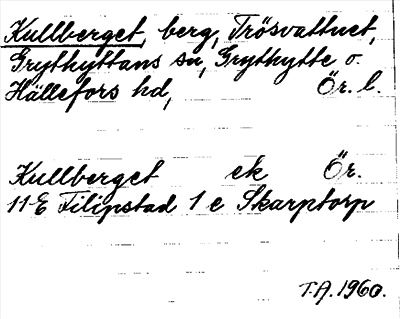 Kullberget, berg, Trösvattnet,
Grythyttans sn, Grythytte o.
Hällefors hd, Ör. l.
Kullberget ek Ör.
11-E Filipstad 1 e Skarptorp
T.A. 1960.